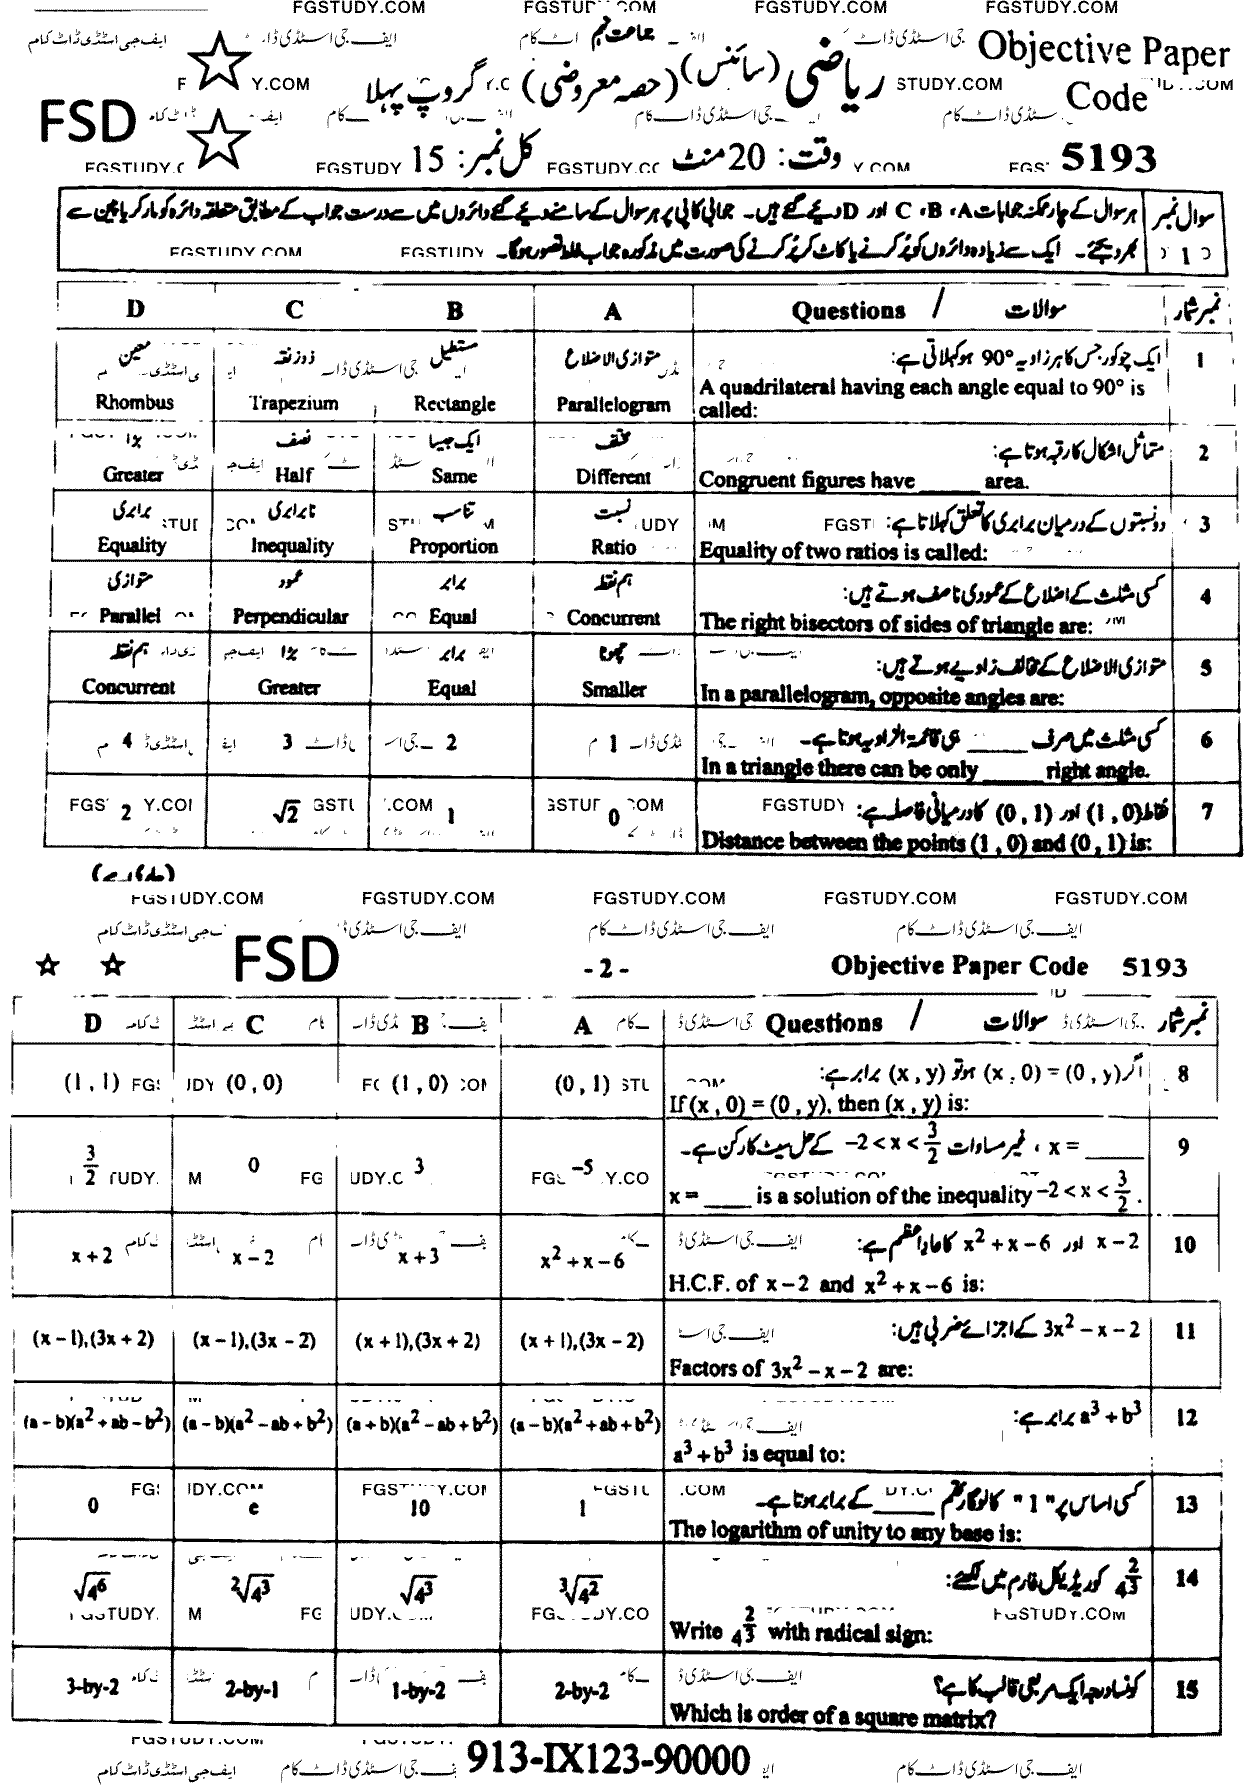 FGSTUDY.COM FGSTUDY.COM FGSTUDY.COM FGSTUDY.COM
جماعت نہم
Objective Paper
ریاضی (سائنس) (حصہ معروضی) گروپ پہلا
Code
FSD
وقت: 20 منٹ کل نمبر: 15
5193
سوال نمبر 1 ہر سوال کے چار ممکنہ جوابات A، B، C اور D دیئے گئے ہیں۔ جوابی کاپی پر ہر سوال کے سامنے دیئے گئے دائروں میں سے درست جواب کے مطابق متعلقہ دائرہ کو مارکر یا پین سے
بھر دیجئے۔ ایک سے زیادہ دائروں کو پُر کرنے یا کاٹ کر پُر کرنے کی صورت میں مذکورہ جواب غلط تصور ہوگا۔
D C B A Questions / سوالات نمبر شمار
معین ذوزنقہ مستطیل متوازی الاضلاع ایک چوکور جس کا ہر زاویہ 90° ہو کہلاتی ہے: 1
Rhombus Trapezium Rectangle Parallelogram A quadrilateral having each angle equal to 90° is called:
بڑا نصف ایک جیسا مختلف متماثل اشکال کا رقبہ ہوتا ہے: 2
Greater Half Same Different Congruent figures have _____ area.
برابری نابرابری تناسب نسبت دو نسبتوں کے درمیان برابری کا تعلق کہلاتا ہے: 3
Equality Inequality Proportion Ratio Equality of two ratios is called:
متوازی عمود برابر ہم نقطہ کسی مثلث کے اضلاع کے عمودی ناصف ہوتے ہیں: 4
Parallel Perpendicular Equal Concurrent The right bisectors of sides of triangle are:
ہم نقطہ بڑا برابر چھوٹا متوازی الاضلاع کے مخالف زاویے ہوتے ہیں: 5
Concurrent Greater Equal Smaller In a parallelogram, opposite angles are:
4 3 2 1 کسی مثلث میں صرف _____ ہی قائمۃ الزاویہ ہوتا ہے۔ 6
In a triangle there can be only _____ right angle.
2 √2 1 0 نقاط (1 , 0) اور (0 , 1) کا درمیانی فاصلہ ہے: 7
Distance between the points (1 , 0) and (0 , 1) is:
(جاری ہے)
FGSTUDY.COM FGSTUDY.COM FGSTUDY.COM FGSTUDY.COM FGSTUDY.COM
ایف جی اسٹڈی ڈاٹ کام ایف جی اسٹڈی ڈاٹ کام ایف جی اسٹڈی ڈاٹ کام
FSD - 2 - Objective Paper Code 5193
D C B A Questions / سوالات نمبر شمار
(1 , 1) (0 , 0) (1 , 0) (0 , 1) اگر (x , 0) = (0 , y) ہو تو (x , y) برابر ہے: 8
If (x , 0) = (0 , y), then (x , y) is:
3/2 0 3 −5 x = _____ ، غیر مساوات −2 < x < 3/2 کے حل سیٹ کا رکن ہے۔ 9
x = ____ is a solution of the inequality −2 < x < 3/2 .
x + 2 x − 2 x + 3 x² + x − 6 x − 2 اور x² + x − 6 کا عاد اعظم ہے: 10
H.C.F. of x − 2 and x² + x − 6 is:
(x − 1),(3x + 2) (x − 1),(3x − 2) (x + 1),(3x + 2) (x + 1),(3x − 2) 3x² − x − 2 کے اجزائے ضربی ہیں: 11
Factors of 3x² − x − 2 are:
(a − b)(a² + ab − b²) (a − b)(a² − ab + b²) (a + b)(a² − ab + b²) (a − b)(a² + ab + b²) a³ + b³ برابر ہے: 12
a³ + b³ is equal to:
0 e 10 1 کسی اساس پر "1" کا لوگارتھم _____ کے برابر ہوتا ہے۔ 13
The logarithm of unity to any base is:
√4⁶ ²√4³ √4³ ³√4² 4^(2/3) کو ریڈیکل فارم میں لکھئے: 14
Write 4^(2/3) with radical sign:
3-by-2 2-by-1 1-by-2 2-by-2 کونسا درجہ ایک مربعی قالب کا ہے؟ 15
Which is order of a square matrix?
913-IX123-90000